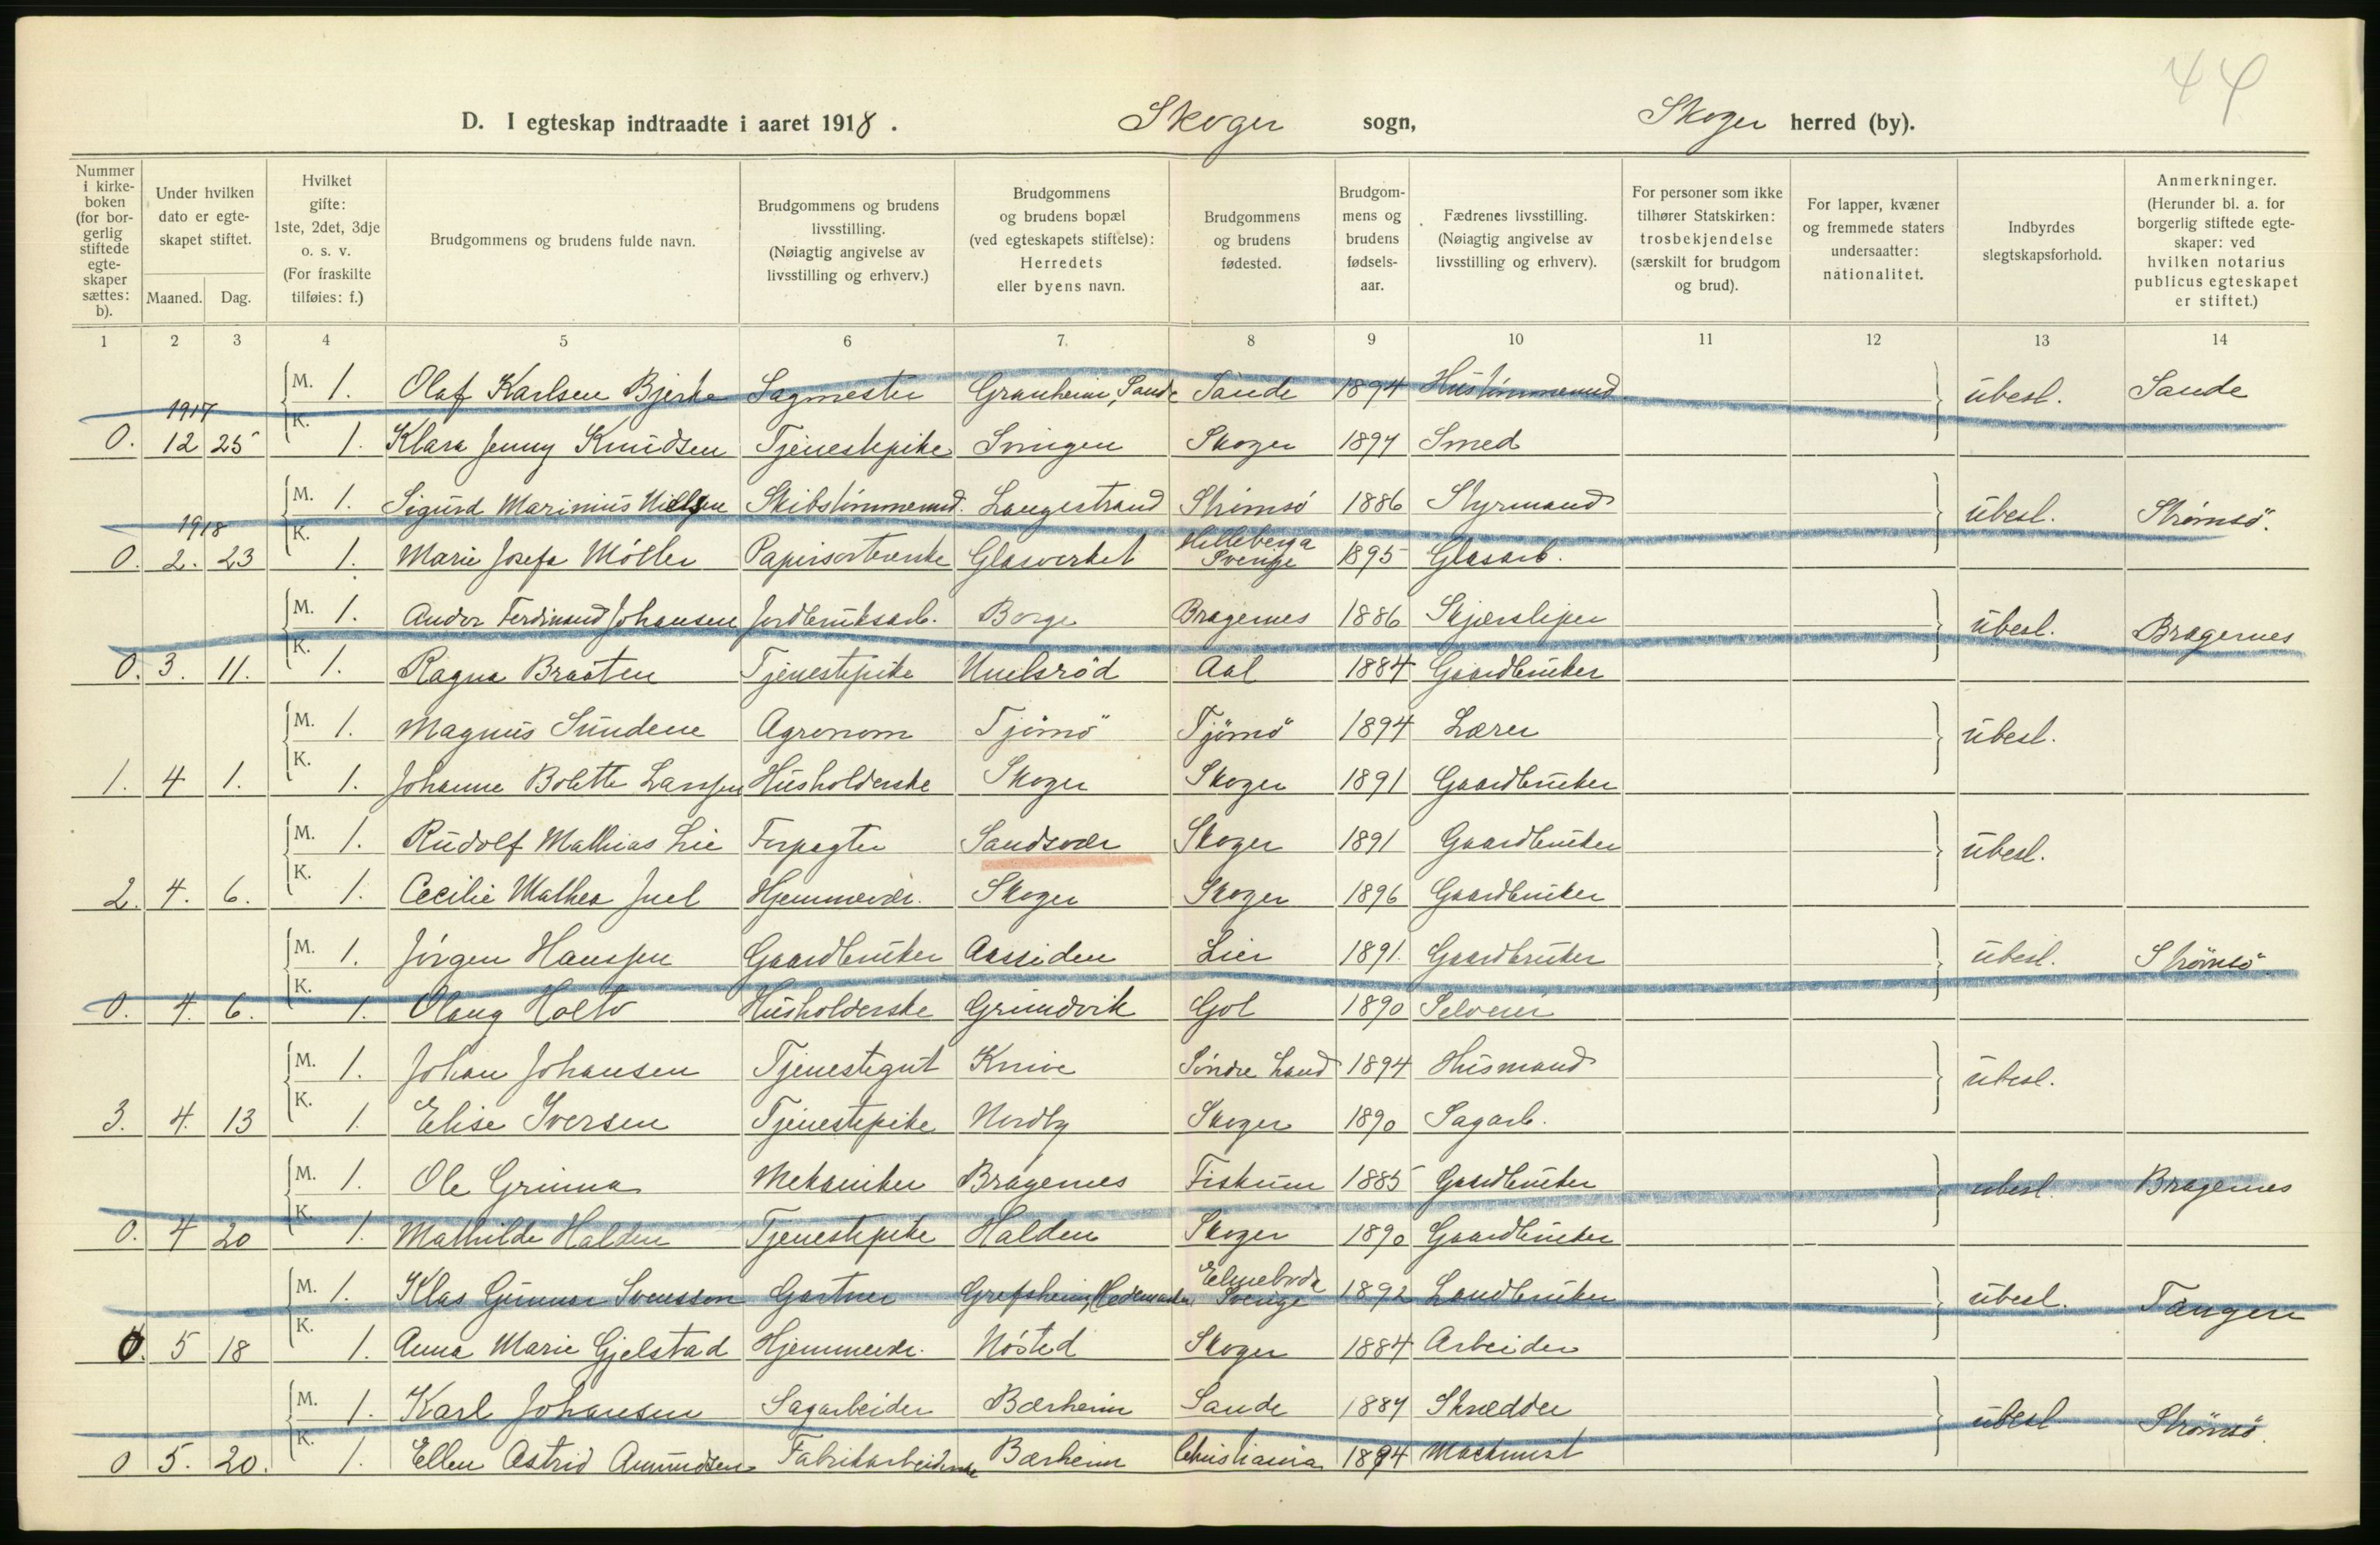 44
D. I egteskap indtraadte i aaret 1918. Skoger sogn, Skoger herred (by).
Nummer i kirkeboken (for borgerlig stiftede egteskaper sættes: b).
Under hvilken dato er egteskapet stiftet.
Maaned. Dag.
Hvilket gifte: 1ste, 2det, 3dje o. s. v. (For fraskilte tilføies: f.)
Brudgommens og brudens fulde navn.
Brudgommens og brudens livsstilling. (Nøiagtig angivelse av livsstilling og erhverv.)
Brudgommens og brudens bopæl (ved egteskapets stiftelse): Herredets eller byens navn.
Brudgommens og brudens fødested.
Brudgommens og brudens fødselsaar.
Fædrenes livsstilling. (Nøiagtig angivelse av livsstilling og erhverv).
For personer som ikke tilhører Statskirken: trosbekjendelse (særskilt for brudgom og brud).
For lapper, kvæner og fremmede staters undersaatter: nationalitet.
Indbyrdes slegtskapsforhold.
Anmerkninger. (Herunder bl. a. for borgerlig stiftede egteskaper: ved hvilken notarius publicus egteskapet er stiftet.)
1 2 3 4 5 6 7. 8 9 10 11 12 13 14
M. 1. Olaf Karlsen Bjerke Sagmester Granheim, Sande Sande 1894 Hustömmermd. ubesl. Sande
1917
0. 12 25 K. 1. Klara Jenny Knudsen Tjenestepike Svingen Skoger 1897 Smed
M. 1. Sigurd Marinius Nielsen Skibstömmermd. Langestrand Strömsö 1886 Styrmand ubesl. Strömsö.
1918
0. 2. 23 K. 1. Marie Josefa Möller Papirsorterske Glasverket Helleberga Sverige 1895 Glasarb.
M. 1. Andor Ferdinand Johansen Jordbruksarb. Borge Bragernes 1886 Skjærsliper ubesl. Bragernes
0. 3. 11. K. 1. Ragna Braaten Tjenestepike Unelsröd Aal 1884 Gaardbruker
M. 1. Magnus Sundene Agronom Tjömö Tjömö 1894 Lærer ubesl.
1. 4 1. K. 1. Johanne Bolette Larssen Husholderske Skoger Skoger 1891 Gaardbruker
M. 1. Rudolf Mathias Lie Forpagter Sandsvær Skoger 1891 Gaardbruker ubesl.
2. 4. 6. K. 1. Cecilie Mathea Juel Hjemmevær. Skoger Skoger 1896 Gaardbruker
M. 1. Jörgen Hanssen Gaardbruker Aassiden Lier 1891. Gaardbruker ubesl. Strömsö.
0. 4. 6. K. 1. Olaug Holto Husholderske Grundvik Gol 1890 Selveier
M. 1. Johan Johansen Tjenestegut Knive Söndre Land 1894 Husmand ubesl.
3. 4. 13 K. 1. Elise Iversen Tjenestepike Nordby Skoger 1890 Sagarb.
M. 1. Ole Grinna Mekaniker Bragernes Fiskum 1885 Gaardbruker ubesl. Bragernes
0. 4 20 K. 1. Mathilde Halden Tjenestepike Halden Skoger 1890 Gaardbruker
M. 1. Klas Gunnar Svensson Gartner Grefsheim, Hedemarken Elmeboda Sverige 1892 Landbruker ubesl. Tangen
0. 5 18 K. 1. Anna Marie Gjelstad Hjemmevær. Nösted Skoger 1884 Arbeider
M. 1. Karl Johansen Sagarbeider Bærheim Sande 1887 Skrædder ubesl. Strömsö.
0 5. 20. K. 1. Ellen Astrid Amundsen Fabrikarbeiderske Bærheim Christiania 1894 Maskinist